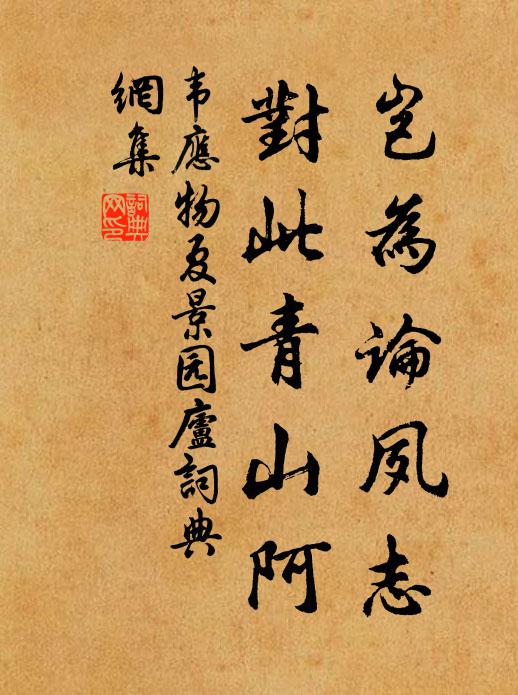 岂為論夙志
對此青山阿
韦應物夏景园廬詞典
網集
詞典
网印